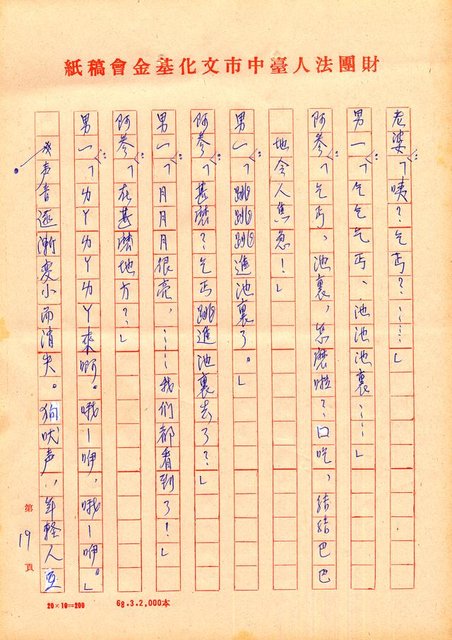 財團法人臺中市文化基金會稿紙
老婆:「咦?乞丐?……」
男一:「乞乞乞丐、池池池裏……」
阿蔘:「乞丐、池裏,怎麼啦?口吃,結結巴巴
地令人焦急!」
男一:「跳跳跳進池裏了。」
阿蔘:「甚麼?乞丐跳進池裏去了?」
男一:「月月月很亮,……我們都看到了!」
阿蔘:「在甚麼地方?」
男一:「ㄌㄚㄌㄚㄌㄚ來啊。哦—咿,哦—咿。」
聲音逐漸變小而消失。狗吠声,年輕人亞
第19頁
20×10=200
68.3.2,000本